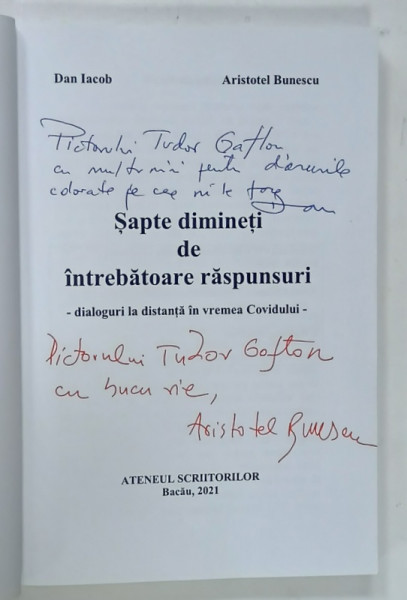 Dan Iacob Aristotel Bunescu
Pictorului Tudor Gafton
cu mulțumiri pentru darurile
colorate pe care ni le
Dan
Șapte dimineți
de
întrebătoare răspunsuri
- dialoguri la distanță în vremea Covidului -
Pictorului Tudor Gafton
cu bucurie,
Aristotel Bunescu
ATENEUL SCRIITORILOR
Bacău, 2021